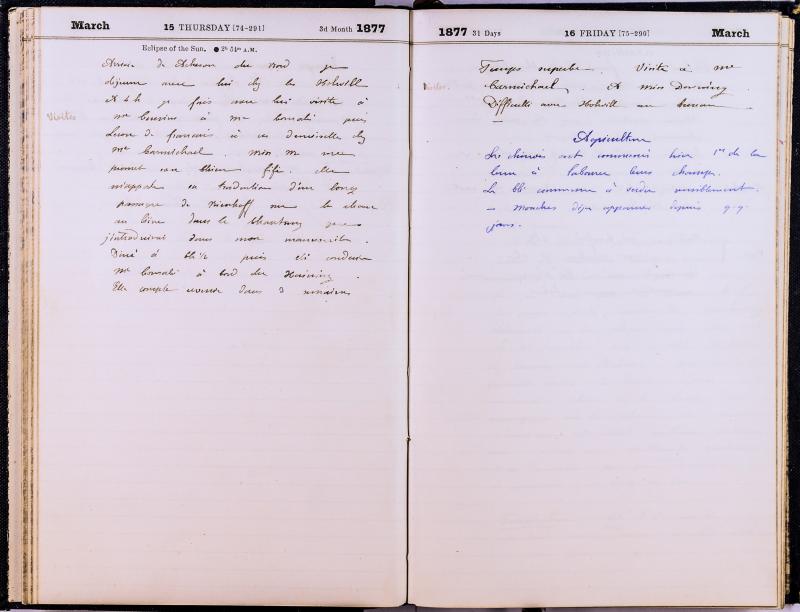 March 15 THURSDAY [74-291] 3d Month 1877
Eclipse of the Sun. ● 2h 54m A.M.
Arrivée de Acheson du Nord je
déjeune avec lui chez les Holwill
A 4 h je fais avec lui visite à
Visites
Mr à Me Consati puis
Leçon de français à ces demoiselles chez
Me Carmichael. Miss M me
promet un chien fifi. Elle
m'appelle en traduction d'un long
passage de sur la chasse
au lièvre dans le Shantung que
j'introduirai dans mon manuscrit.
Diné à 6h ½ puis été conduire
Me Consati à bord du
Elle compte revenir dans 3 semaines
1877 31 Days 16 FRIDAY [75-290] March
Temps superbe. Visite à Me
Visites
Carmichael. A Miss Downing
Difficulté avec Holwill au bureau
—
Agriculture
Les chinois ont commencé hier 1er de la
lune à labourer leurs champs.
Le blé commence à verdir sensiblement.
— Mouches déjà apparues depuis q.q.
jours.